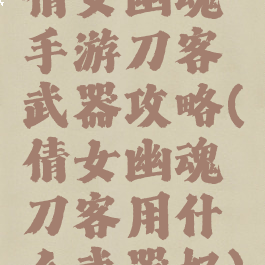 倩女幽魂
手游刀客
武器攻略(
倩女幽魂
刀客用什
么武器好)